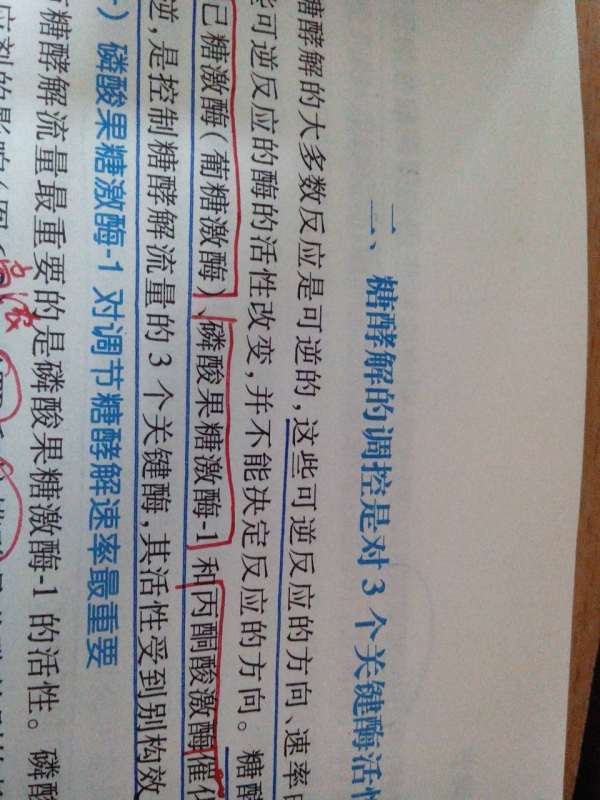 二、糖酵解的调控是对3个关键酶活性
糖酵解的大多数反应是可逆的,这些可逆反应的方向、速率由
些可逆反应的酶的活性改变,并不能决定反应的方向。糖酵
己糖激酶(葡糖激酶)、磷酸果糖激酶-1和丙酮酸激酶催化
逆,是控制糖酵解流量的3个关键酶,其活性受到别构效
)磷酸果糖激酶-1对调节糖酵解速率最重要
糖酵解流量最重要的是磷酸果糖激酶-1的活性。磷酸
高浓
的影响(图